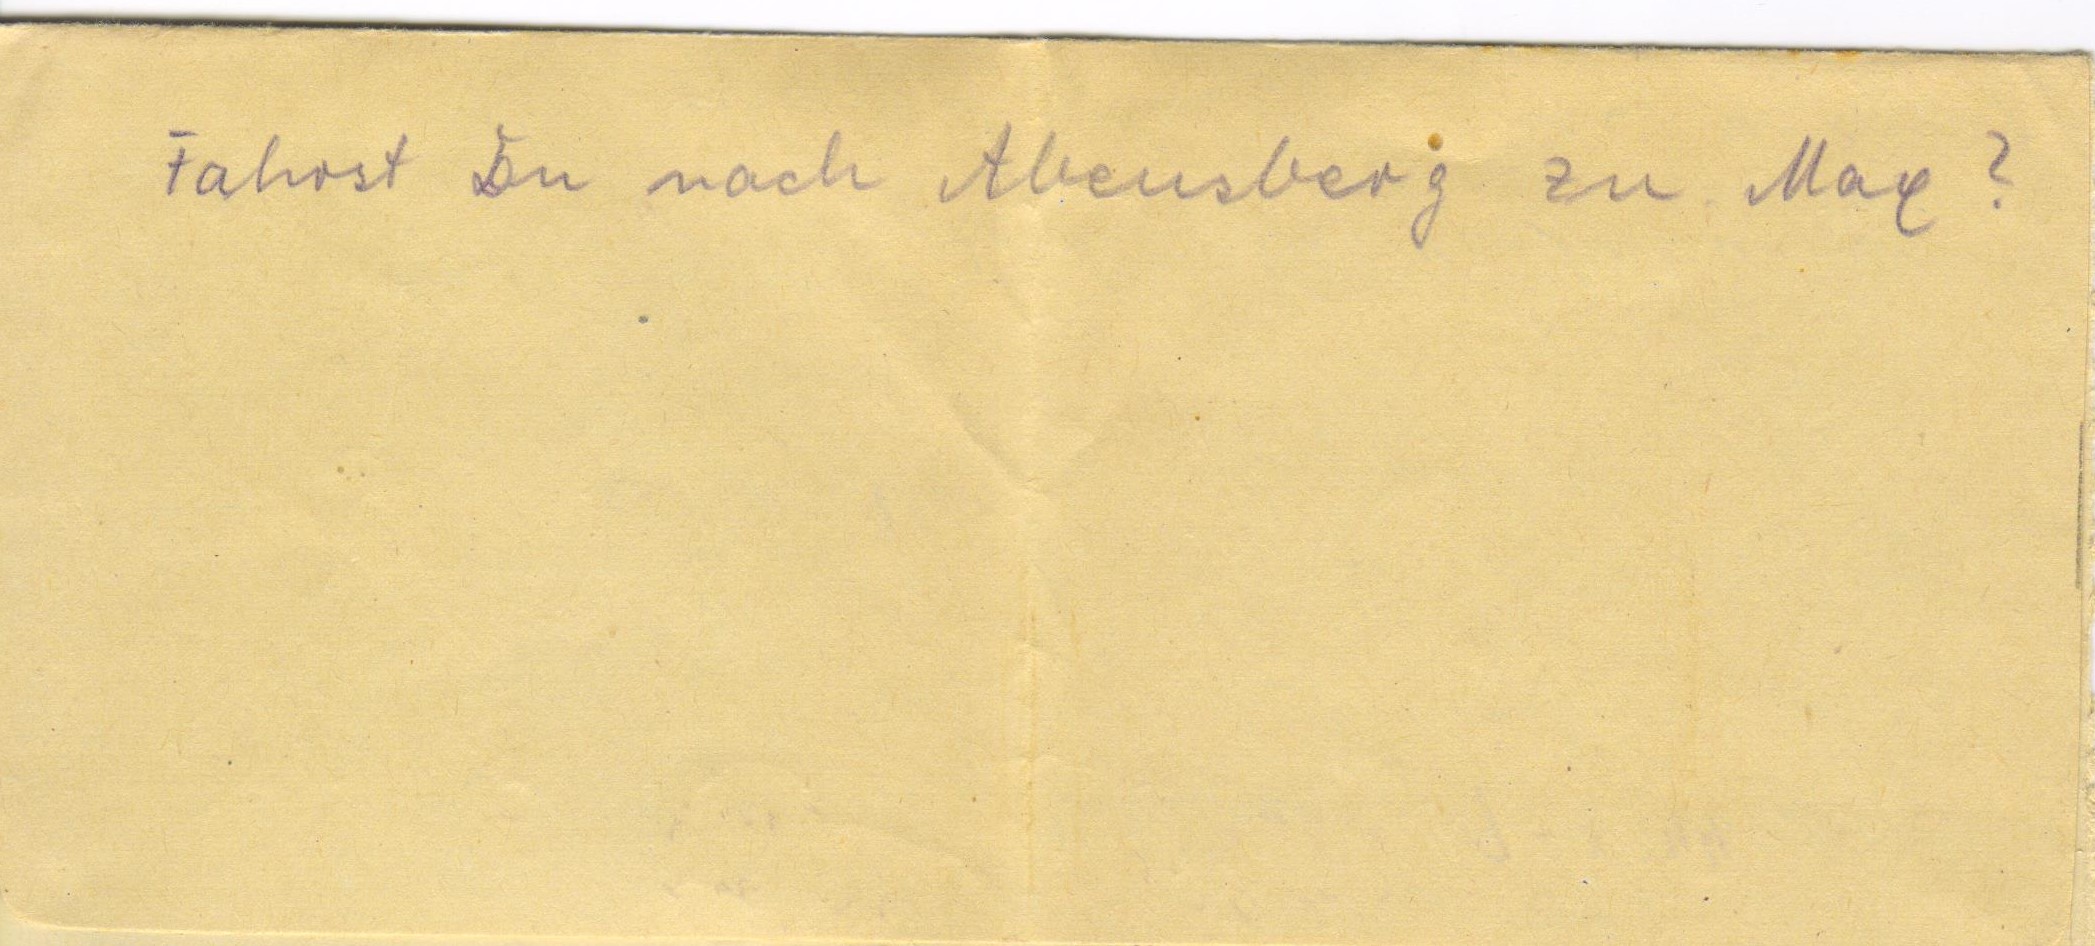 Fahrst Du nach Abensberg zu Max?